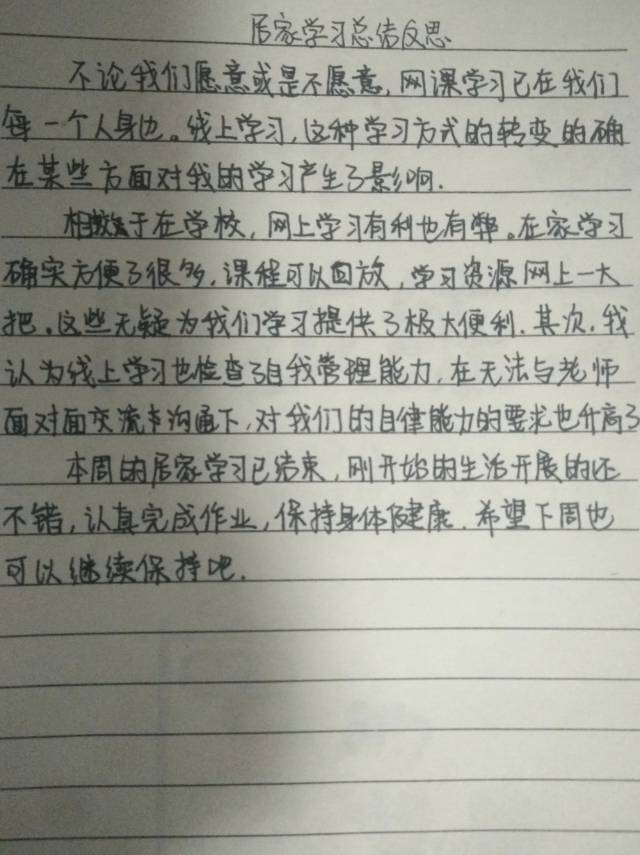 居家学习总结反思
不论我们愿意或是不愿意,网课学习已在我们
每一个人身边。线上学习,这种学习方式的转变,的确
在某些方面对我的学习产生了影响.
相较于在学校,网上学习有利也有弊。在家学习
确实方便了很多,课程可以回放,学习资源网上一大
把。这些无疑为我们学习提供了极大便利.其次,我
认为线上学习也检查了自我管理能力,在无法与老师
面对面交流与沟通下,对我们的自律能力的要求也升高了
本周的居家学习已结束,刚开始的生活开展的还
不错,认真完成作业,保持身体健康.希望下周也
可以继续保持吧.